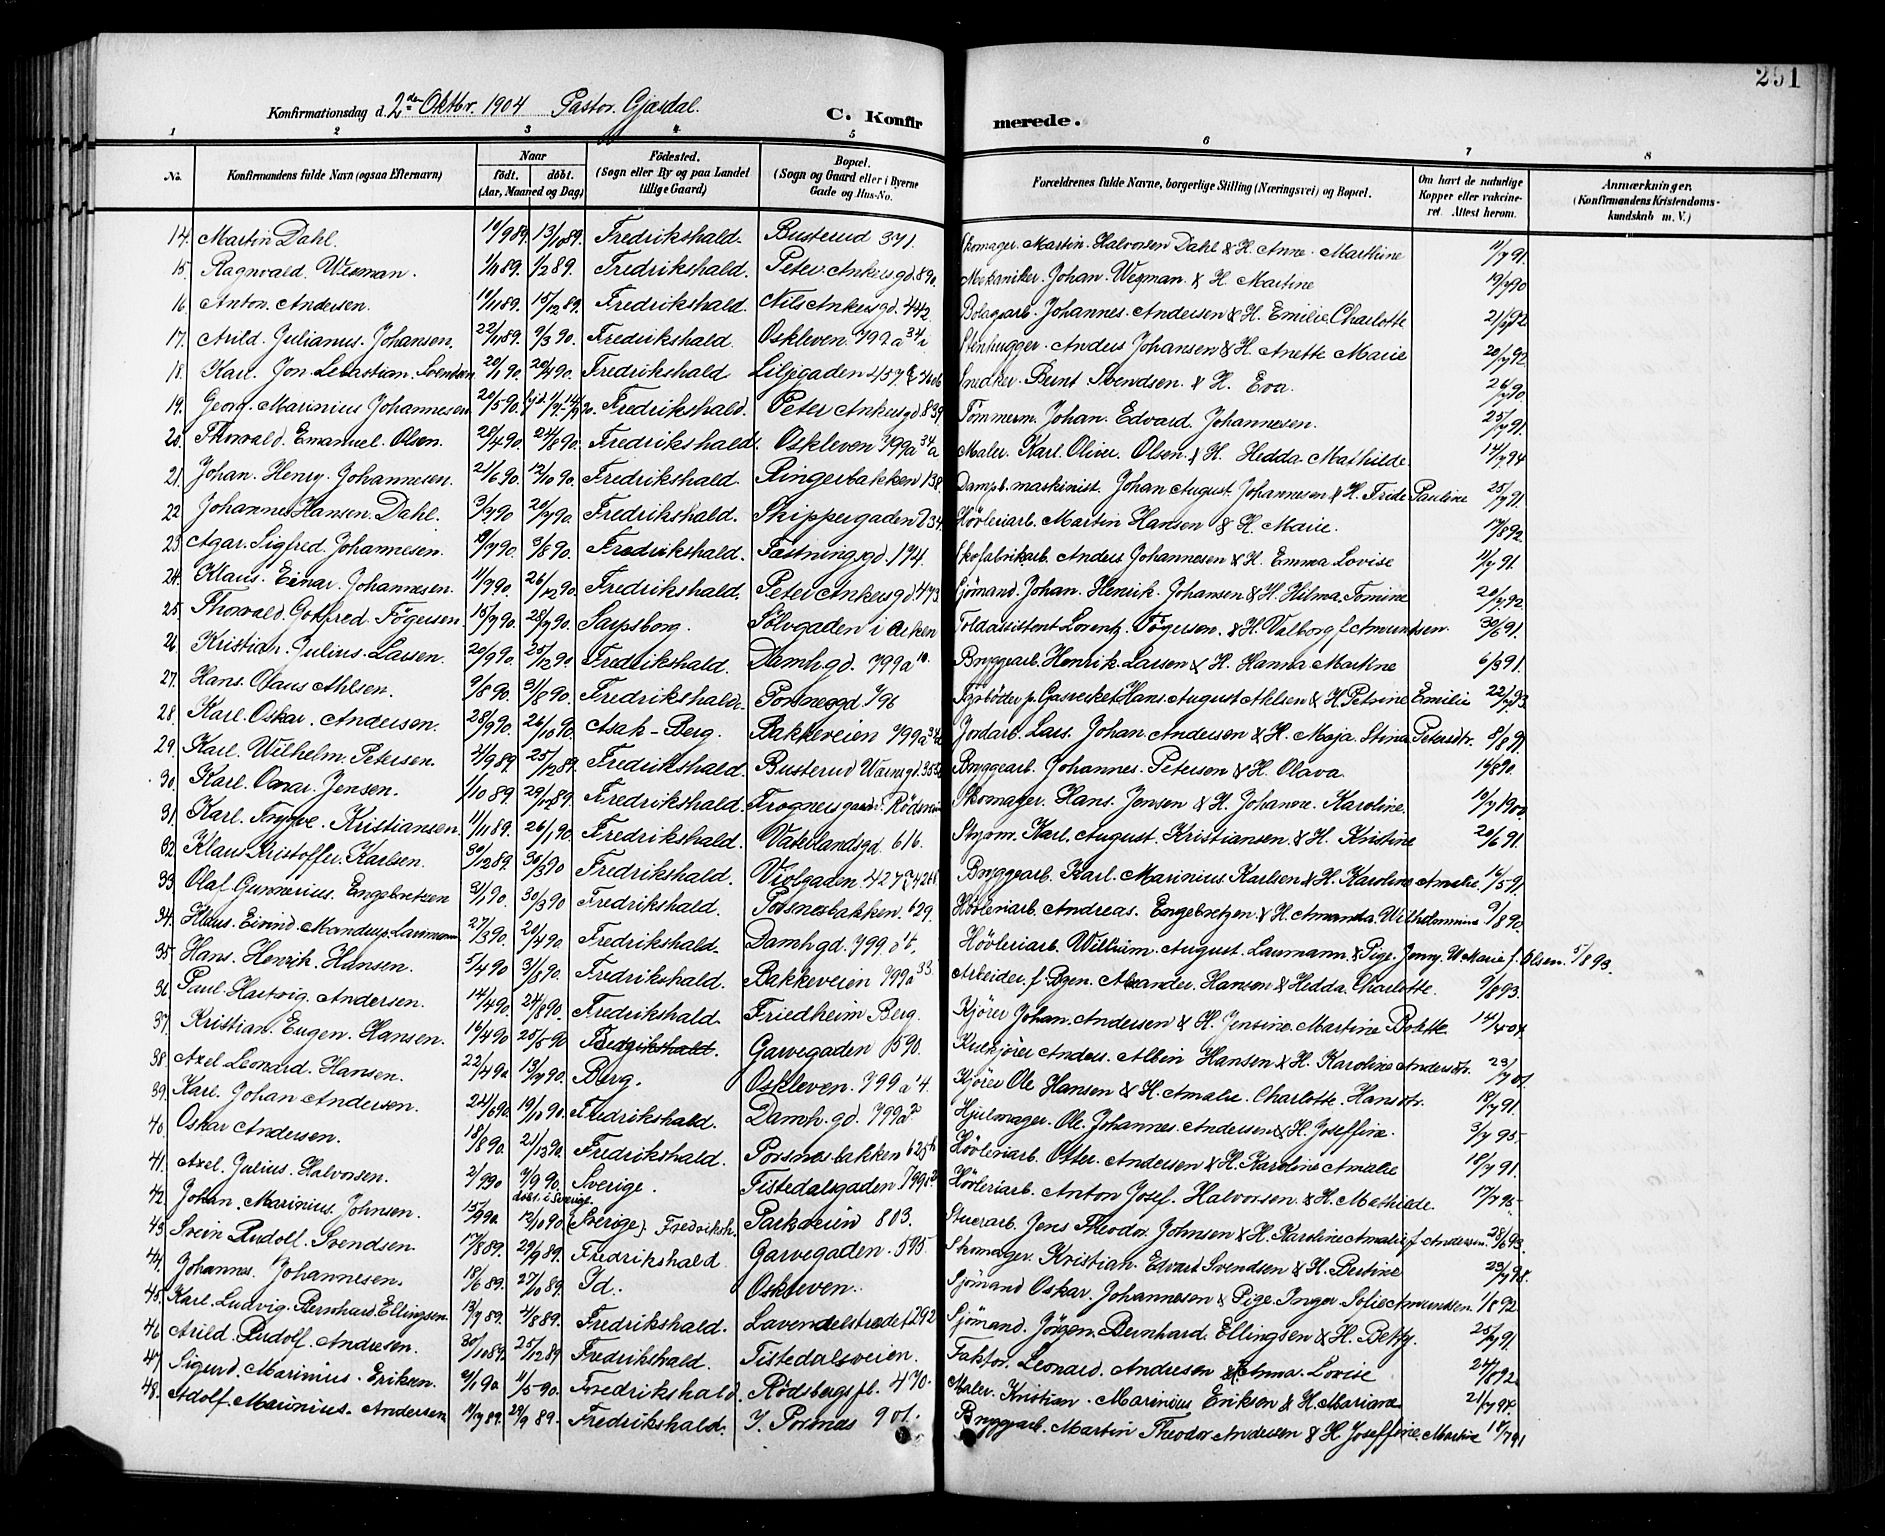 251
Konfirmationsdag d. 2den Oktbr. 1904 Pastor Gjæsdal.
C. Konfirmerede.
1 2 3 4 5 6 7 8
No. Konfirmandens fulde Navn (ogsaa Efternavn) Naar født. døbt. (Aar, Maaned og Dag) Födested. (Sogn eller By og paa Landet tillige Gaard) Bopæl. (Sogn og Gaard eller i Byerne Gade og Hus-No. Forældrenes fulde Navne, borgerlige Stilling (Næringsvei) og Bopæl. Om havt de naturlige Kopper eller vakcineret. Attest herom. Anmærkninger. (Konfirmandens Kristendomskundskab m. V.)
14. Martin Dahl. 13/10 89. Fredrikshald. Busterud 371. Skomager Martin Halvorsen Dahl & H. Anne Marthine 11/7 91.
15. Ragnvald Wegman. 1/2 89. Fredrikshald. Peter Ankersgd. 890. Mekaniker Johan Wegman & H. Martine 19/7 90
16. Anton Andersen. 15/12 89. Fredrikshald. Nils Ankersgd. 442. Johannes Andersen & H. Emilie Charlotte
17. Arild Julianus Johansen. 9/3 90. Fredrikshald. Oskleven 799a Stenhugger Anders Johansen & H. Anette Marie 20/7 92.
18. Karl Jon Sebastian Svendsen 20/1 90. 20/4 90. Fredrikshald Liljegaden 457 Snedker Bernt Svendsen & H. Eva.
19. Georg Marinius Johannesen 20/5 90. Fredrikshald. Peter Ankersgd. 839 Tömmerm. Johan Edvard Johannesen. 25/7 91.
20. Thorvald Emanuel Olsen. 28/4 90. 24/8 90. Fredrikshald. Oskleven 799a Maler Karl Oliver Olsen & H. Hedda Mathilde. 14/7 94
21. Johan Henry Johannesen. 21/6 90. 12/10 90. Fredrikshald. Ringerbakken 138. Dampb. maskinist Johan August Johannesen & H. Frida Pauline 25/7 91.
22. Johannes Hansen Dahl. 20/7 90. Fredrikshald. Skippergaden 234. Hövleriarb. Martin Hansen & H. Marie. 17/8 92.
23. Agar Sigfred Johannesen. 3/8 90. Fredrikshald. Fæstningsgd. 174. Skofabrikarb. Anders Johannesen & H. Emma Lovise 11/7 91.
24. Klaus Einar Johannesen. 11/7 90. 26/12 90. Fredrikshald. Peter Ankersgd. 473. Sjömand Johan Henrik Johansen & H. Hilma Tomine 20/7 92.
25. Thorvald Gotfred Tögersen 15/7 90. 28/7 90. Sarpsborg. Sölvgaden i Parken Toldassistent Lorentz Tögersen & H. Valborg f. Amundsen. 30/6 91.
26. Kristian Julius Larsen. 20/9 90. 25/12 90 Fredrikshald. Damh.gd. 799a Bryggearb. Henrik Larsen & H. Hanna Martine 6/3 91.
27. Hans Olaus Ahlsen. 9/8 90. 31/8 90. Fredrikshald. Tornesgd 796 Fyrböder p. Gasverket Hans August Ahlsen & H. Petrine Emilie 22/7 93.
28. Karl Oskar Andersen. 28/9 90. 26/10 90. Asak-Berg. Bakkeveien 799a Jordarb. Lars Johan Andersen & H. Maja Stina Petersdtr. 8/8 91.
29. Karl Wilhelm Petersen. 4/9 89. 25/12 89. Fredrikshald. Busterud Bryggearb. Johannes Petersen & H. Olava. 14/8 90.
30. Karl Omar Jensen. 1/10 89. 29/10 89. Fredrikshald. Skomager Hans Jensen & H. Johanne Karoline. 10/7 1900.
31. Karl Trygve Kristiansen. 11/11 89. 26/1 90. Fredrikshald. Vaterlandsgd. 616. Styrm. Karl August Kristiansen & H. Kristine 20/6 91.
32. Klaus Kristoffer Karlsen. 30/12 89. 30/3 90 Fredrikshald. Violgaden 427 Bryggearb. Karl Marinius Karlsen & H. Karoline Amalie 14/5 91.
33. Olaf Gunnerius Engebretsen 3/1 90. 30/3 90 Fredrikshald. Porsnesbakken 629. Hövleriarb. Andreas Engebretsen & H. Amanda Wilhelmmine 9/8 90.
34. Klaus Eivind Mandrup Laumann 27/3 90. 20/4 90 Fredrikshald. Damh.gd. 799 Hövleriarb. William August Laumann & Pige Jenny Marie f. Olsen. 5/8 93.
35. Hans Henrik Hansen. 5/4 90 31/8 90. Fredrikshald. Bakkeveien 799a 33. Arbeider f. Byen Alexander Hansen & Hedda Charlotte. 9/8 93.
36. Paul Hartvig Andersen. 14/4 90. 24/8 90. Fredrikshald. Friedheim Berg. Kjörer Johan Andersen & H. Jensine Martine 14/4 04.
37. Kristian Eugen Hansen. 16/4 90 25/5 90 Fredrikshald. Garvegaden 590. Anders Albin Hansen & H. Karoline Andersdtr. 23/7 01.
38. Axel Leonard Hansen. 22/4 90 13/7 90. Berg. Oskleven 799a 4. Kjörer Ole Hansen & H. Amalie Charlotte Hansdtr. 18/7 91.
39. Karl Johan Andersen. 24/6 90. 19/10 90. Fredrikshald. Damh.gd. 799a Hjulmager Ole Johannes Andersen & H. Joseffine. 3/7 95.
40. Oskar Andersen. 18/8 90. Fredrikshald. Porsnesbakken 625b Hövleriarb. Otter Andersen & H. Karoline Amalie 18/7 91.
41. Axel Julius Halvorsen. 7/9 90. döbt i Sverige. Sverige. Tistedalsgaden Hövleriarb. Anton Josef Halvorsen & H. Mathilde. 17/7 95.
42. Johan Marinius Johnsen. 12/10 90 (Sverige) Fredriksh. Parkveien 803. Stuerarb. Jens Theodor Johnsen & H. Karoline Amalie f. Andersen. 28/6 93.
43. Svein Rudolf Svendsen. 17/8 89. 29/9 89. Fredrikshald. Garvegaden 595. Skomager Kristian Edvard Svendsen & H. Bertine 23/7 98.
44. Johannes Johannesen. 18/6 89. 27/10 89. Id. Oskleven. Sjömand Oskar Johannesen & Pige Inger Sofie Amundsen. 1/8 92.
45. Karl Ludvig Bernhard Ellingsen. 13/7 89. 4/8 89. Fredrikshald. Lavendelstrædet 292 Sjömand Jörgen Bernhard Ellingsen & H. Betty. 25/7 91.
46. Arild Rudolf Andresen. 30/10 89. 25/12 89. Fredrikshald. Tistedalsveien. Faktor Leonard Andresen & Anna Lovise 24/8 92
47. Sigurd Marinius Eriksen. 9/1 90. 11/5 90. Fredrikshald. Rödsbergsfl. 470. Maler Kristian Marinius Eriksen & H. Mariane 21/7 94.
48. Adolf Marinius Andersen 11/7 89. 29/9 89. Fredrikshald. Y. Porsnes 901. Bryggearb. Martin Theodor Andersen & H. Joseffine Martine 18/7 91